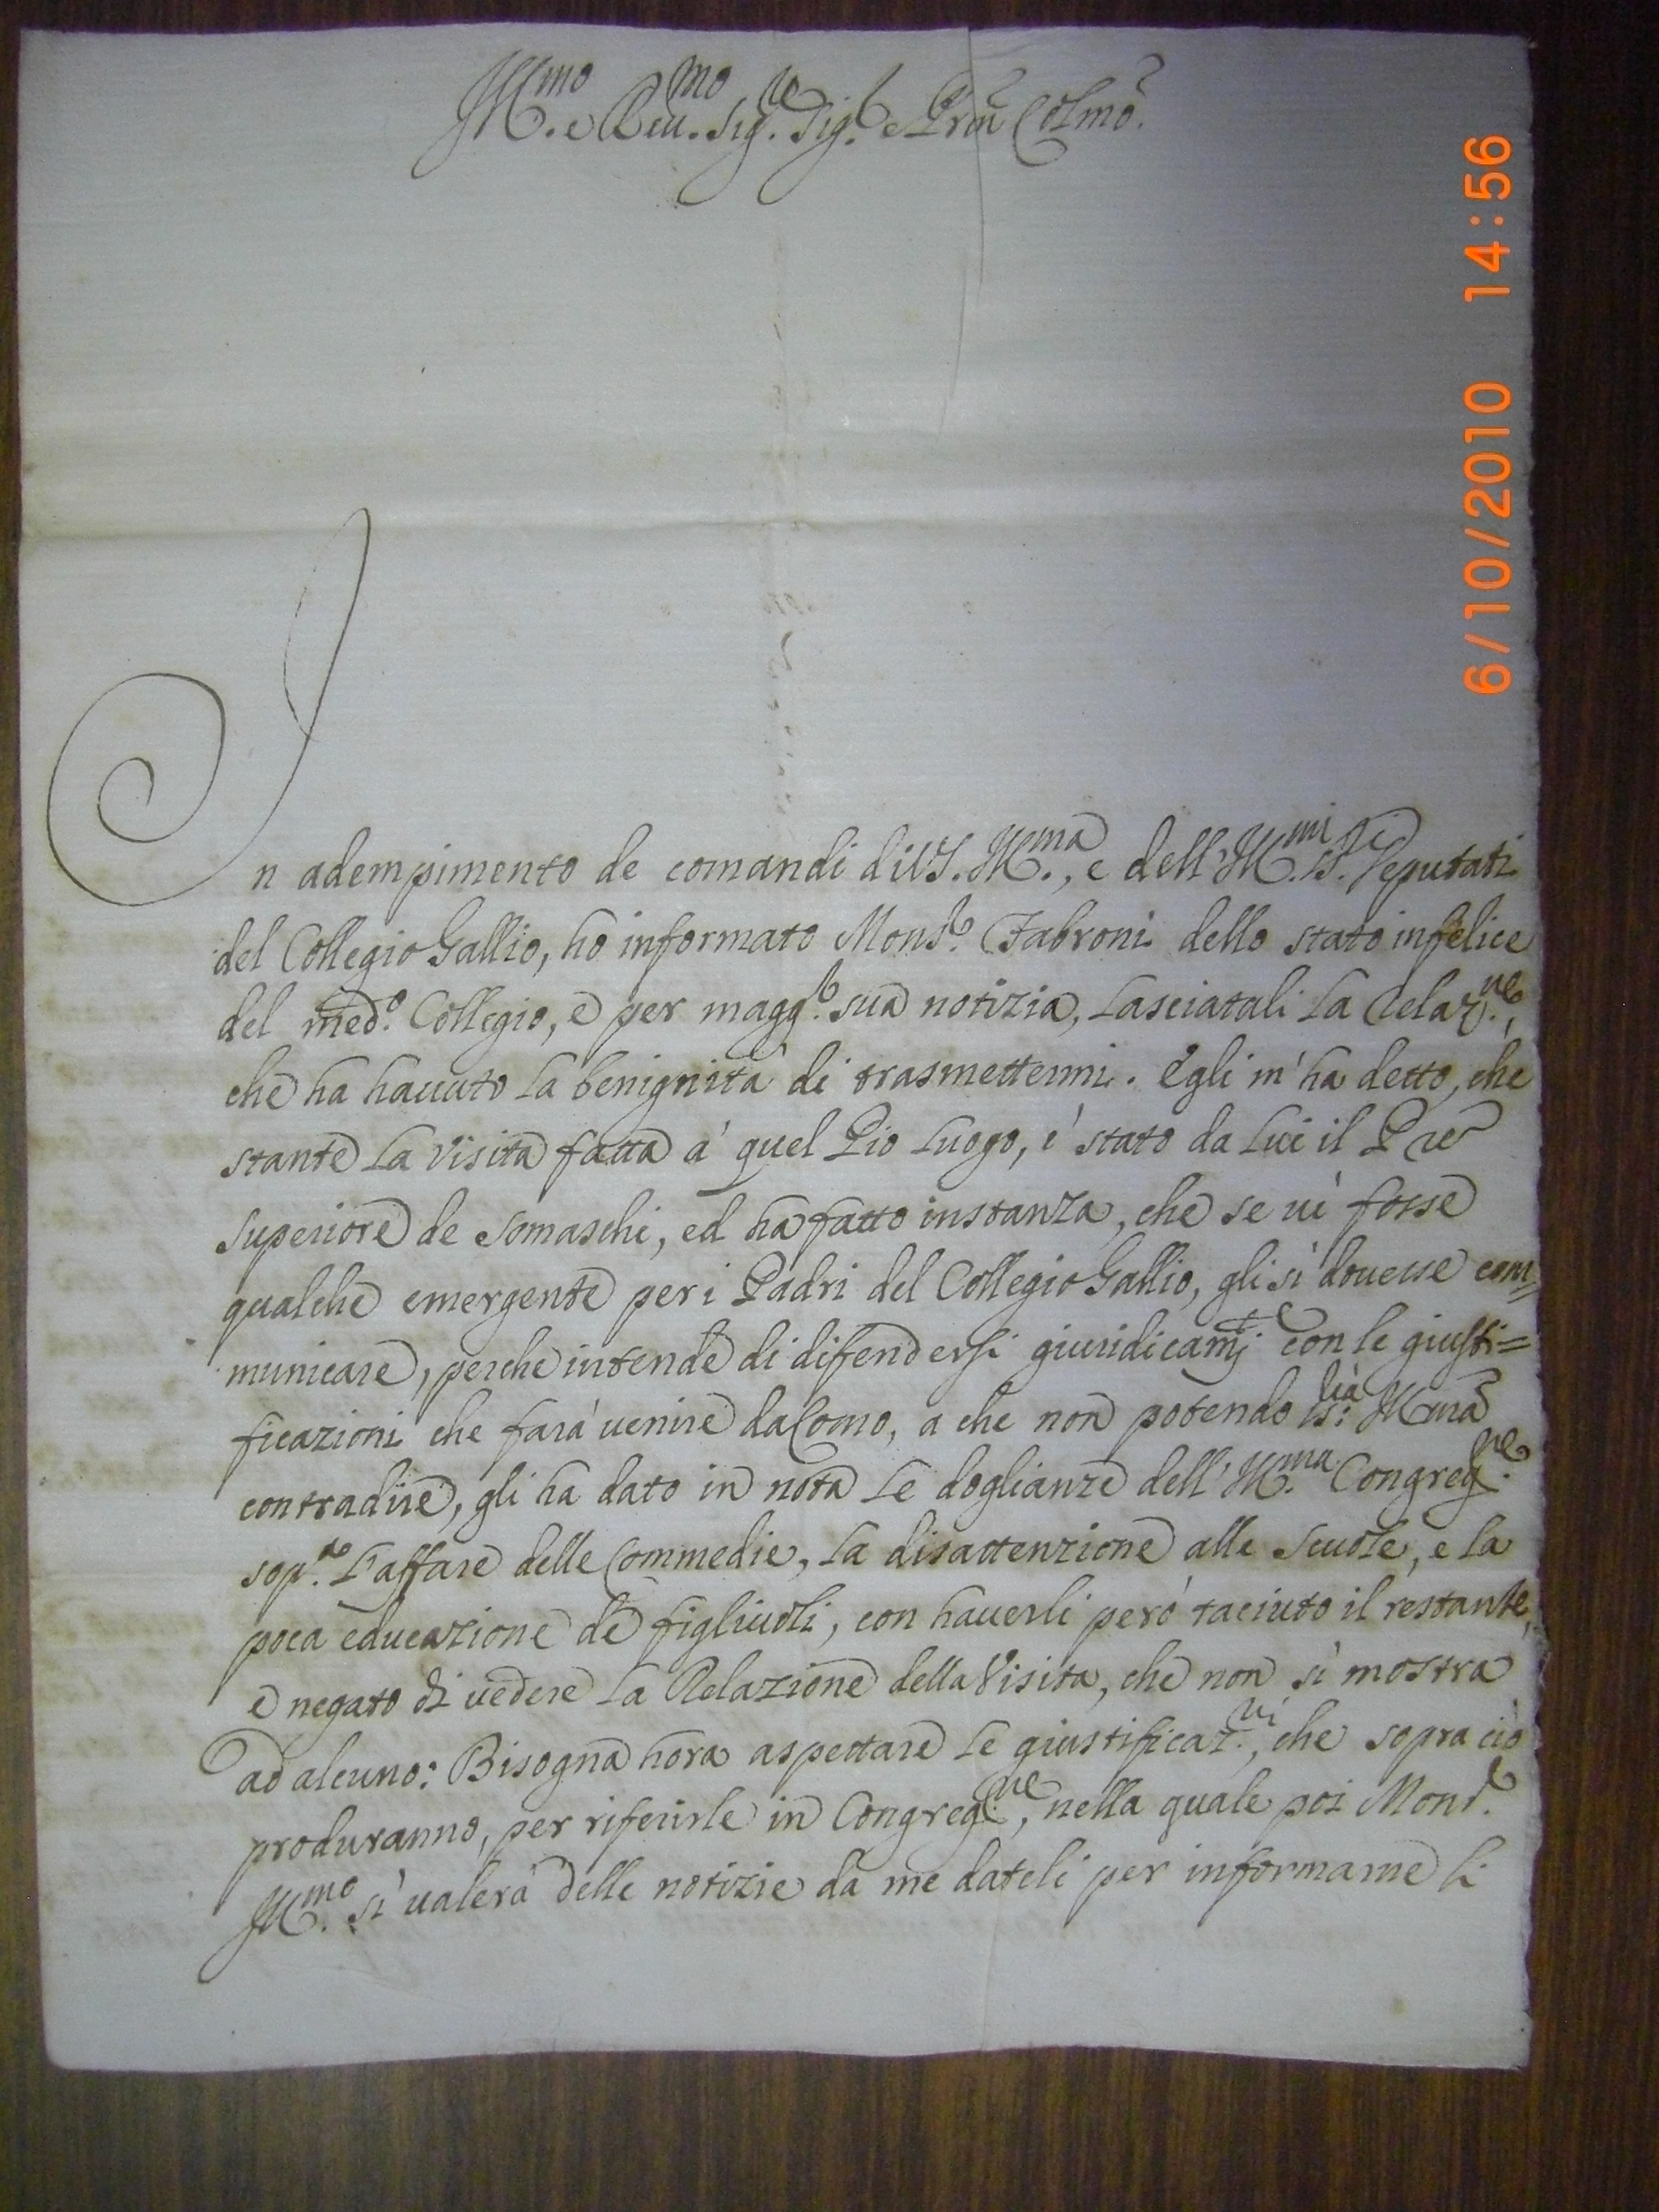 Ill.mo e Reu.mo Sig.re Sig.r e Pron Colmo.
In adempimento de comandi di V.S. Ill.ma, e dell'Ill.mi SS.ri Deputati
del Collegio Gallio, hò informato Mons.r Fabroni dello stato infelice
del med.o Collegio, e per magg.r sua notizia, lasciatali la Relaz.ne,
che ha hauuto la benignità di trasmettermi. Egli m'ha detto, che
stante la visita fatta à quel Pio luogo, è stato da lui il Pre
Superiore de Somaschi, ed ha fatto instanza, che se uì fosse
qualche emergente per i Padri del Collegio Gallio, gli sì douesse com=
municare, perche intende di difendersi giuridicam.te con le giusti=
ficazioni che farà uenire da Como, a che non potendo S: Sria Illma
contradire, gli ha dato in nota le doglianze dell'Ill.ma Congreg.ne
sop.ra l'affare delle Commedie, la disattenzione alle scuole, e la
poca educazione de figliuoli, con hauerli però taciuto il restante,
e negato di uedere la Relazione della Visita, che non sì mostra
ad alcuno: Bisogna hora aspettare le giustificaz.ni, che sopra ciò
produranno, per riferirle in Congreg.ne, nella quale poi Mons.r
Ill.mo sì ualerà delle notizie da me dateli per informarne li
6/10/2010 14:56